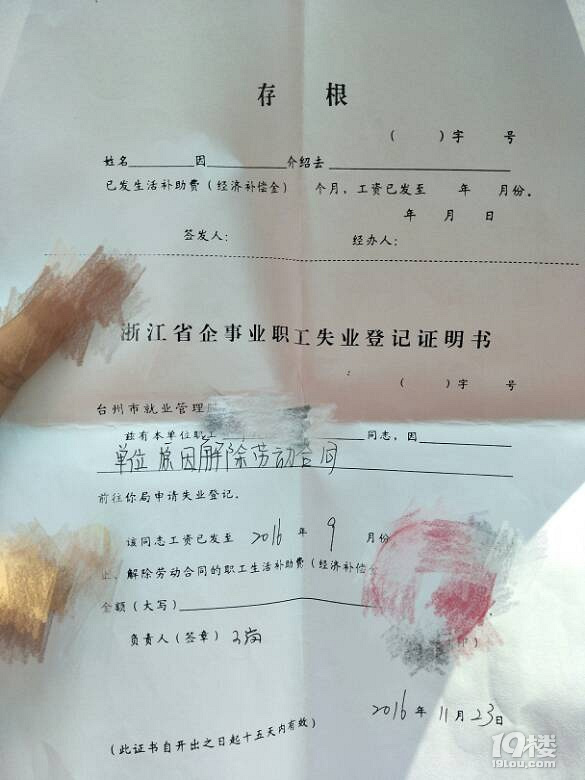 存 根
（ ）字 号
姓名________因________介绍去________
已发生活补助费（经济补偿金） 个月，工资已发至 年 月份。
年 月 日
签发人： 经办人：
浙江省企事业职工失业登记证明书
（ ）字 号
台州市就业管理
兹有本单位职工 同志，因
单位原因解除劳动合同
前往你局申请失业登记。
该同志工资已发至 2016 年 9 月份
止、解除劳动合同的职工生活补助费（经济补偿金
金额（大写）________
负责人（签章）
2016 年 11 月 23 日
（此证书自开出之日起十五天内有效）
19楼
19lou.com